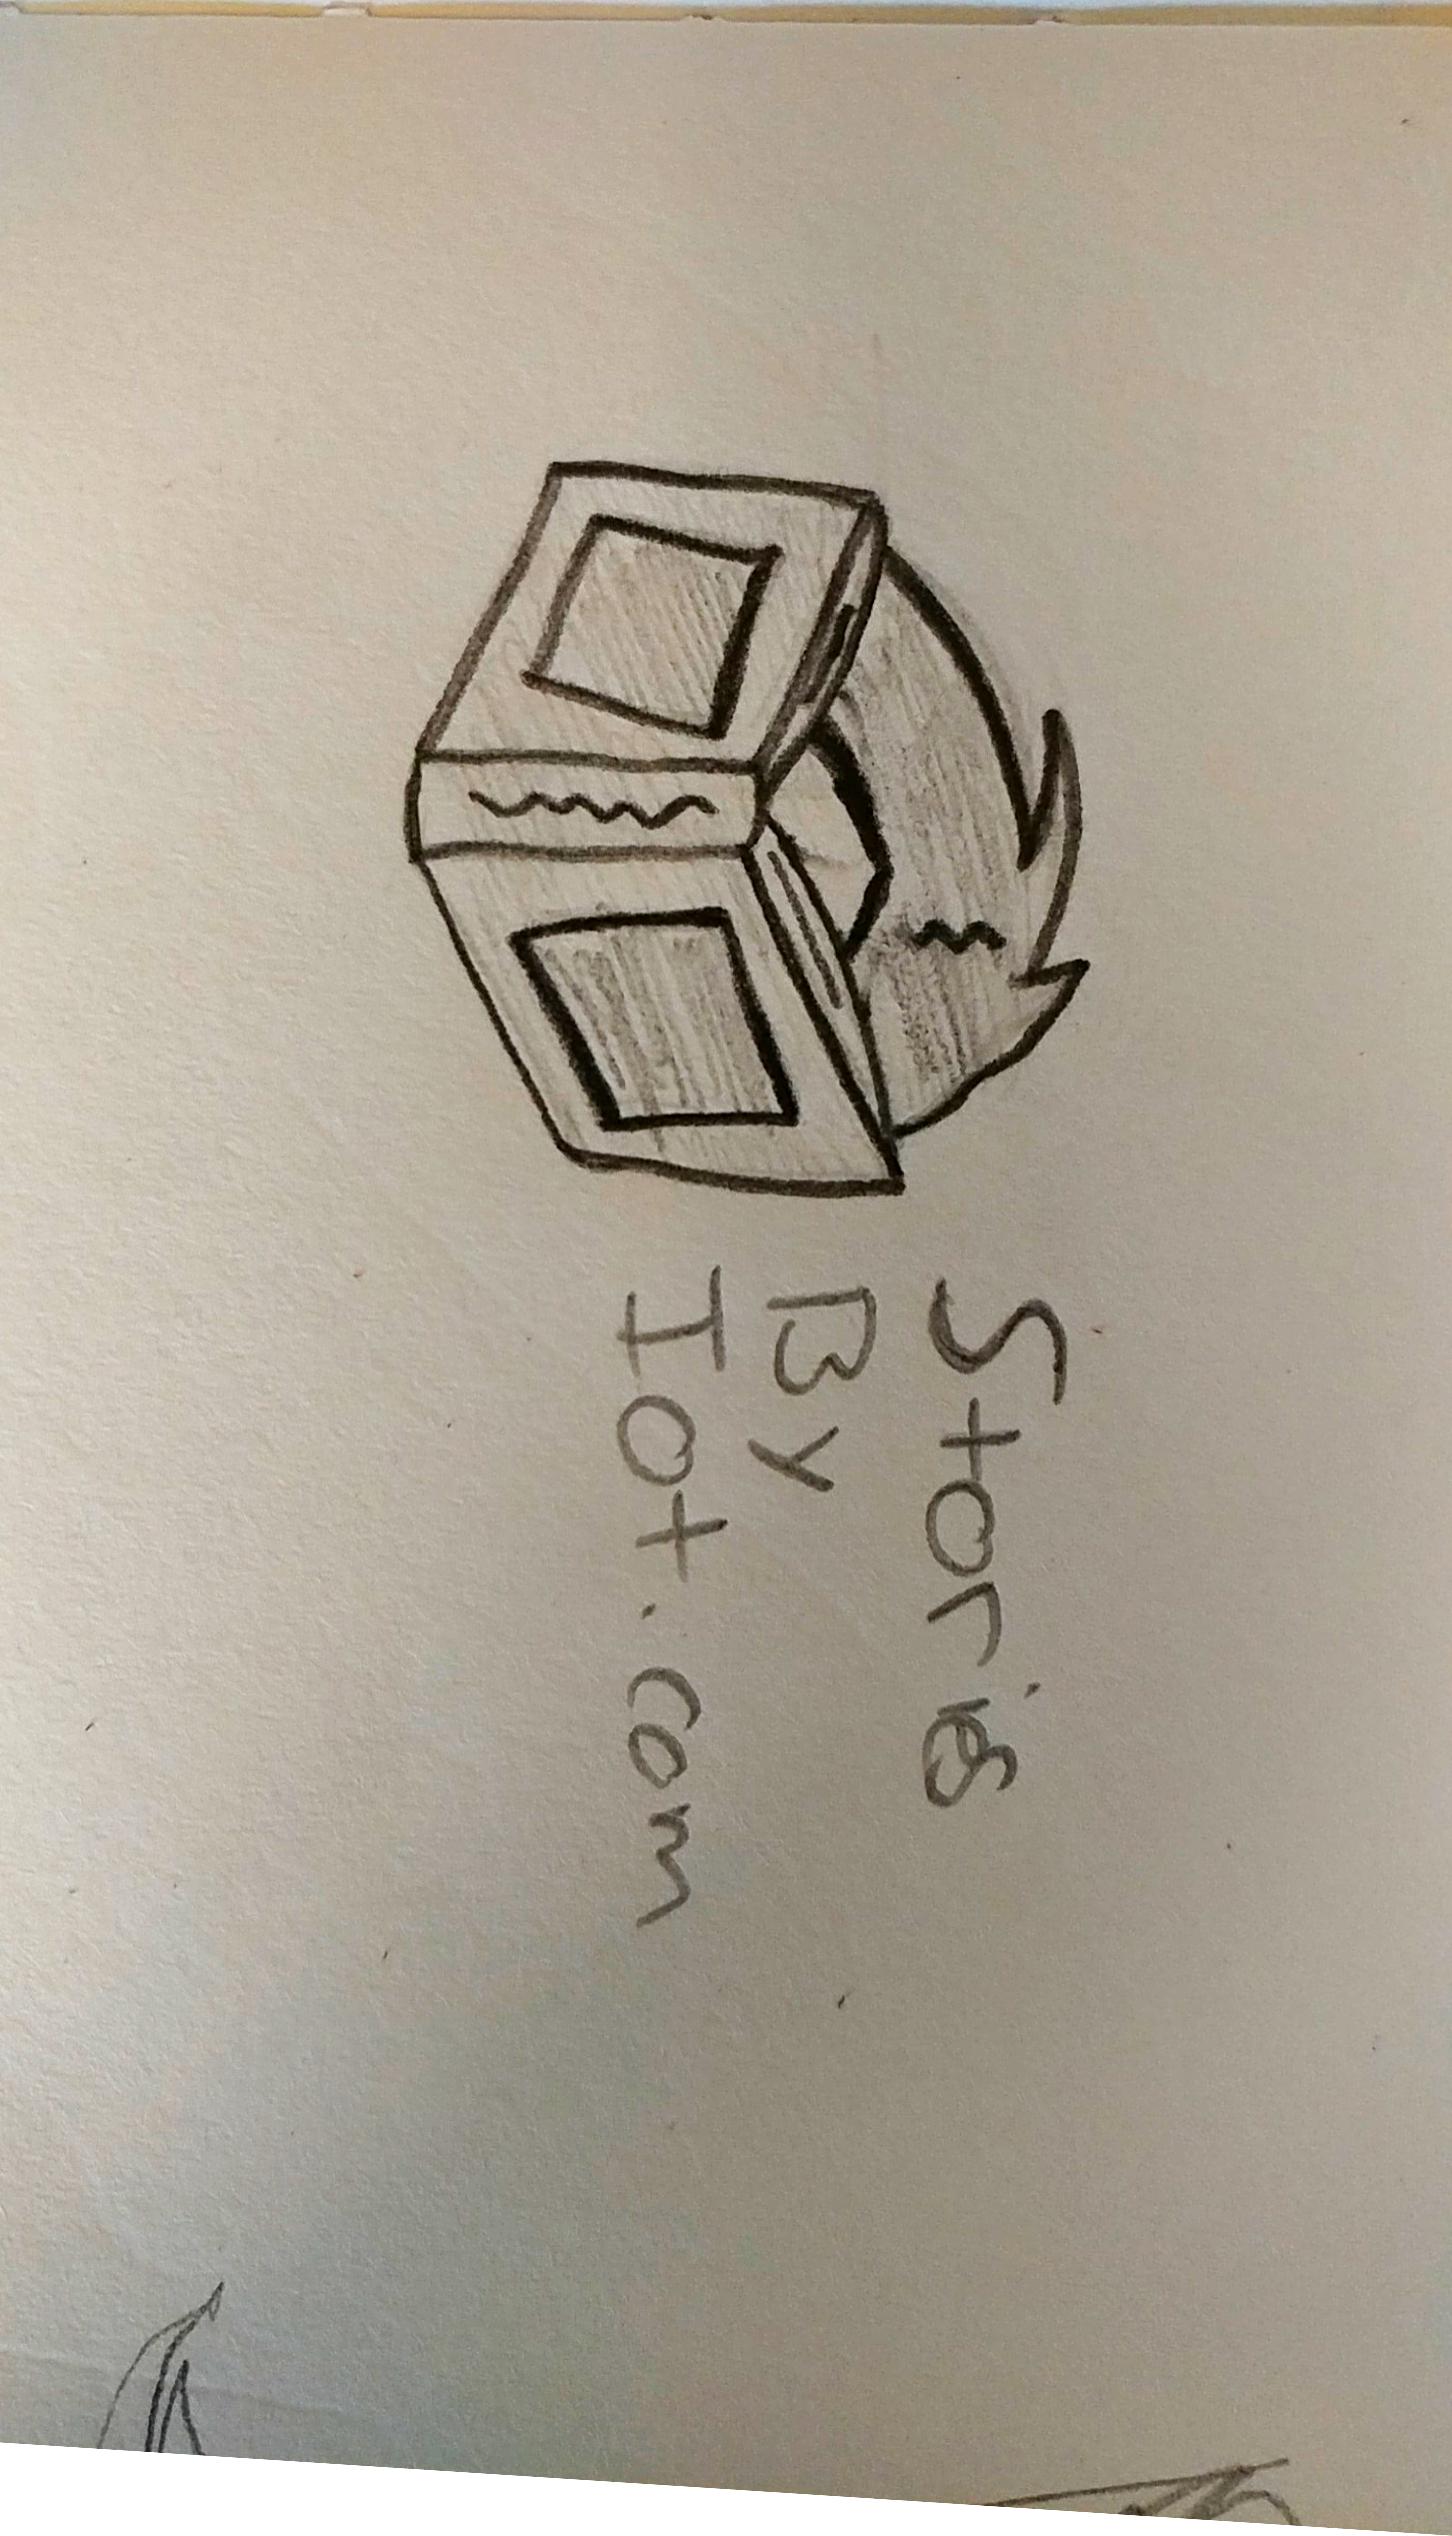 Stories
By
Iot.com